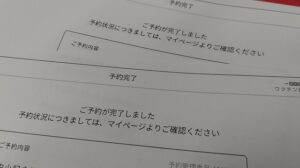 予約完了
ご予約が完了しました
予約状況につきましては、マイページよりご確認ください
ご予約内容
予約完了
ご予約が完了しました
予約状況につきましては、マイページよりご確認ください
ご予約内容